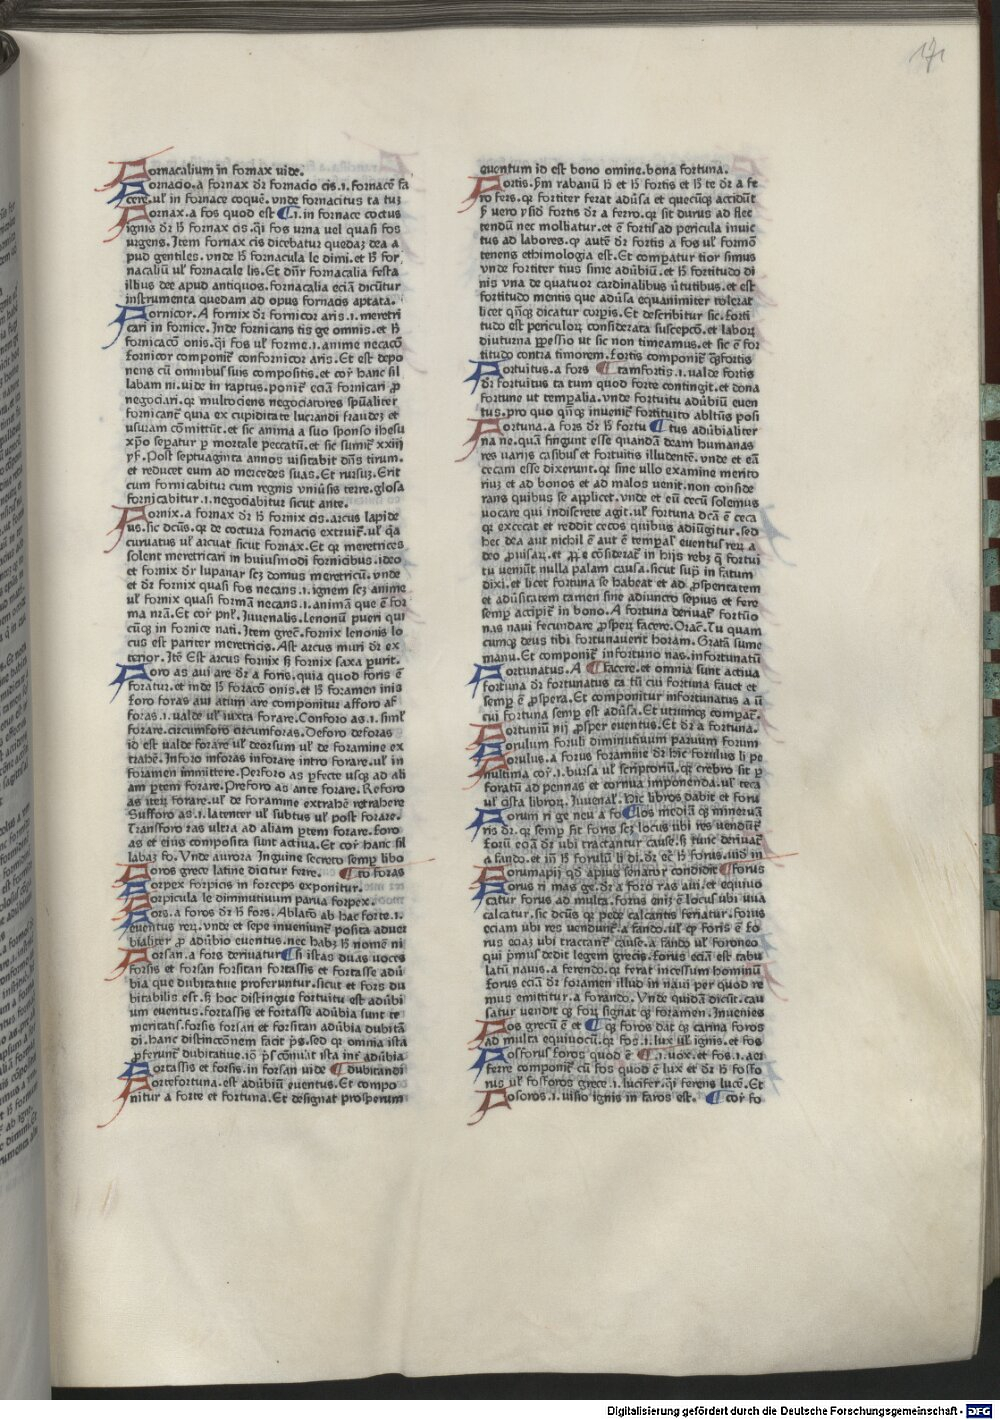 171
Fornacalium in fornax uide.
Fornacio.a fornax dr̄ fornacio cis.i.fornacē fa
cere.ul̓ in fornace coquē.vnde fornacitus ta tuʒ
Fornax.a fos quod est ¶i.in fornace coctus
ignis dr̄ h̄ fornax cis.qi fos urna vel quasi fos
urgens.Item fornax cis dicebatur quedaʒ dea a
pud gentiles.vnde h̄ fornacula le dimi.et h̄ for
naculiū ul̓ fornacale lis.Et dn̄r fornacalia festa
illius dee apud antiquos.fornacalia eciā dicūtur
instrumenta quedam ad opus fornacis aptata.
Fornicor.A fornix dr̄ fornicor aris.i.meretri
cari in fornice.Inde fornicans tis ge omnis.et h̄
fornicacō onis.qi fos ul̓ forme.i.anime necacō
fornicor componit̄ confornicor aris.Et est depo
nens cū omnibus suis compositis.et cor̄ hanc sil
labam ni.uide in raptus.ponit̄ eciā fornicari p̄
negociari.qr multociens negociatores spūaliter
fornicant̄ quia ex cupiditate lucrandi fraudeʒ et
usuram cōmittūt.et sic anima a suo sponso ihesu
xp̄o sepatur p mortale peccatū.et sic sumit̄ xxiij
ys̄.Post septuaginta annos visitabit dn̄s tirum.
et reducet eum ad mercedes suas.Et rursuʒ.Erit
cum fornicabitur cum regnis vniūsis terre.glosa
fornicabitur.i.negociabitur sicut ante.
Fornix.a fornax dr̄ h̄ fornix cis.arcus lapide
us.sic dcūs.qr de coctura fornacis extruit̄.ul̓ qa
curuatus ul̓ arcuat sicut fornax.Et qr meretrices
solent meretricari in huiusmodi fornicibus.ideo
et fornix dr̄ lupanar seʒ domus meretricū.vnde
et dr̄ fornix quasi fos necans.i.ignem seʒ anime
ul̓ fornix quasi formā necans.i.animā que ē for
ma nr̄a.Et cor̄ pnl̄.Iuuenalis.Lenonū pueri qui
cūqʒ in fornice nati.Item grec̄.fornix lenonis lo
cus est pariter meretricis.Ast arcus muri dr̄ ex
terior.Itē Est arcus fornix s̄ fornix saxa p̄urit.
Foro as aui are dr̄ a foris.quia quod foris ē
foratur.et inde h̄ foracō onis.et h̄ foramen inis
foro foras aui atum are componitur afforo af
foras.i.ualde ul̓ iuxta forare.Conforo as.i.siml̄
forare.circumforo circumforas.Deforo deforas
id est ualde forare ul̓ deorsum ul̓ de foramine ex
trahē.Inforo inforas inforare intro forare.ul̓ in
foramen immittere.Perforo as pfecte usqʒ ad ali
am ptem forare.Preforo as ante forare.Reforo
as iterʒ forare.ul̓ de foramine extrahē retrahere
Sufforo as.i.latenter ul̓ subtus ul̓ post forare.
Transforo ras ultra ad aliam ptem forare.foro
as et eius composita sunt actiua.Et cor̄ hanc sil
labaʒ fo.Vnde aurora Inguine secreto semp libo
Foros grece latine dicitur ferre. ¶to foras
Forpex forpicis in forceps exponitur.
Forpicula le diminutiuum parua forpex.
Fors.a foros dr̄ h̄ fors.Ablatō ab hac forte.i.
euentus rerʒ.vnde et sepe inueniunt̄ posita aduer
bialiter p̄ adūbio euentus.nec habʒ h̄ nomē ni
Forsan.a fors deriuatur ¶si istas duas uoces
forsis et forsan forsitan fortassis et fortasse adū
bia que dubitatiue proferuntur.sicut et fors du
bitabilis est.s̄ hoc distingue fortuitu est adūbi
um euentus.fortassis et fortasse adūbia sunt te
meritatis.forsis forsan et forsitan adūbia dubitā
di.hanc distinccōnem facit p̄s.sed qr omnia ista
pferunt̄ dubitatiue.iō p̄s cōnūat ista int̄ adūbia
Fortassis et forsis.in forsan uide ¶dubitandi
Fortefortuna.est adūbiū euentus.Et compo
nitur a forte et fortuna.Et designat prosperum
euentum id est bono omine.bona fortuna.
Fortis.sm̄ rabanū h̄ et h̄ fortis et h̄ te dr̄ a fe
ro fers.qr fortiter ferat adūsa et quecūqʒ accidūt
s̄ vero ysid̄ fortis dr̄ a ferro.qr sit durus ad flec
tendū nec molliatur.et ē fortis ad pericula inuic
tus ad labores.qr autē dr̄ fortis a fos ul̓ formō
tenens ethimologia est.Et compatur tior simus
vnde fortiter tius sime adūbiū.et h̄ fortitudo di
nis vna de quatuor cardinalibus ūtutibus.et est
fortitudo mentis que adūsa equanimiter tolerat
licet qn̄qʒ dicatur corpis.Et describitur sic.forti
tudo est periculorʒ considerata suscepcō.et laborʒ
diuturna ppessio ut sic non timeamus.et sic ē for
titudo contra timorem.fortis componit̄ qʒfortis
Fortuitus.a fors ¶tamfortis.i.ualde fortis
dr̄ fortuitus ta tum quod forte contingit.et dona
fortune ut tempalia.vnde fortuitu adūbiū euen
tus.pro quo qn̄qʒ inuenit̄ fortituito abltūs posi
Fortuna.a fors dr̄ h̄ fortu ¶tus adūbialiter
na ne.quā fingunt esse quandā deam humanas
res uarijs casibus et fortuitis illudentē.vnde et eā
cecam esse dixerunt.qr sine ullo examine merito
riuʒ et ad bonos et ad malos uenit.non conside
rans quibus se applicet.vnde et eū cecū solemus
uocare qui indiscrete agit.ul̓ fortuna dcā ē ceca
qr excecat et reddit cecos quibus adiūgitur.sed
hec dea aut nichil ē aut ē tempal̓ euentus rerʒ a
deo puisarʒ.et ppe cōsiderat̄ in hijs rebʒ q̄ fortui
tu ueniūt nulla palam causa.sicut sup̄ in fatum
dixi.et licet fortuna se habeat et ad psperitatem
et adūsitatem tamen sine adiuncto sepius et fere
semp accipit̄ in bono.A fortuna deriuat̄ fortūo
nas naui fecundare psperʒ facere.Orac̄.Tu quam
cumqʒ deus tibi fortunauerit horam.Grata sume
manu.Et componit̄ infortuno nas.infortunatū
Fortunatus.A ¶facere.et omnia sunt actiua
fortuna dr̄ fortunatus ta tū cui fortuna fauet et
semp ē pspera.Et componitur infortunatus a ū
cui fortuna semp est adūsa.Et utrumqʒ compat̄.
Fortuniū nij psper euentus.Et dr̄ a fortuna.
Forulum foruli diminutiuum paruum forum
Forulus.a forus foramine dr̄ hic forulus li pe
nultima cor̄.i.bursa ul̓ scriptoriū.qr crebro sit p
foratū ad pennas et cornua imponenda.ul̓ teca
ul̓ cista librorʒ.Iuuenal̓.Hic libros dabit et foru
Forum ri ge neu a fo ¶los mediā qʒ mineruā
ris dr̄.qr semp fit foris seʒ locus ubi res uendūt̄
forū eciā dr̄ ubi tractantur cause.s̄ tunc deriuat̄
a fando.et in̄ h̄ forulū li di.dr̄ ec̄ h̄ forus.und̄ in
Forumapij qd̄ apius senator condidit ¶forus
Forus ri mas ge.dr̄ a foro ras aui.et equiuo
catur forus ad multa.forus eniʒ ē locus ubi uua
calcatur.sic dcūs qr pede calcantis feriatur.forus
eciam ubi res uendunt̄.a fando.ul̓ qr foris ē fo
rus eciaʒ ubi tractant̄ cause.a fando ul̓ foroneo
qui p̄mus dedit legem grecis.forus eciā est tabu
latū nauis.a ferendo.qr ferat incessum hominū
forus eciā dr̄ foramen illud in naui per quod re
mus emittitur.a forando.Vnde quidā dicūt.cau
satur uendit qʒ forʒ signat qʒ foramen.Inuenies
Fos grecū ē et ¶qʒ foros dat qʒ carina foros
ad multa equiuocū.qr fos.i.lux ul̓ ignis.et fos
Fosforus foros quod ē ¶.i.uox.et fos.i.aer
ferre componit̄ cū fos quod ē lux et dr̄ h̄ fosfo
rus ul̓ fosforos grece.i.lucifer.qi ferens lucē.Et
Fosoros.i.uisio ignis in faros est. ¶cor̄ fo
Digitalisierung gefördert durch die Deutsche Forschungsgemeinschaft - DFG